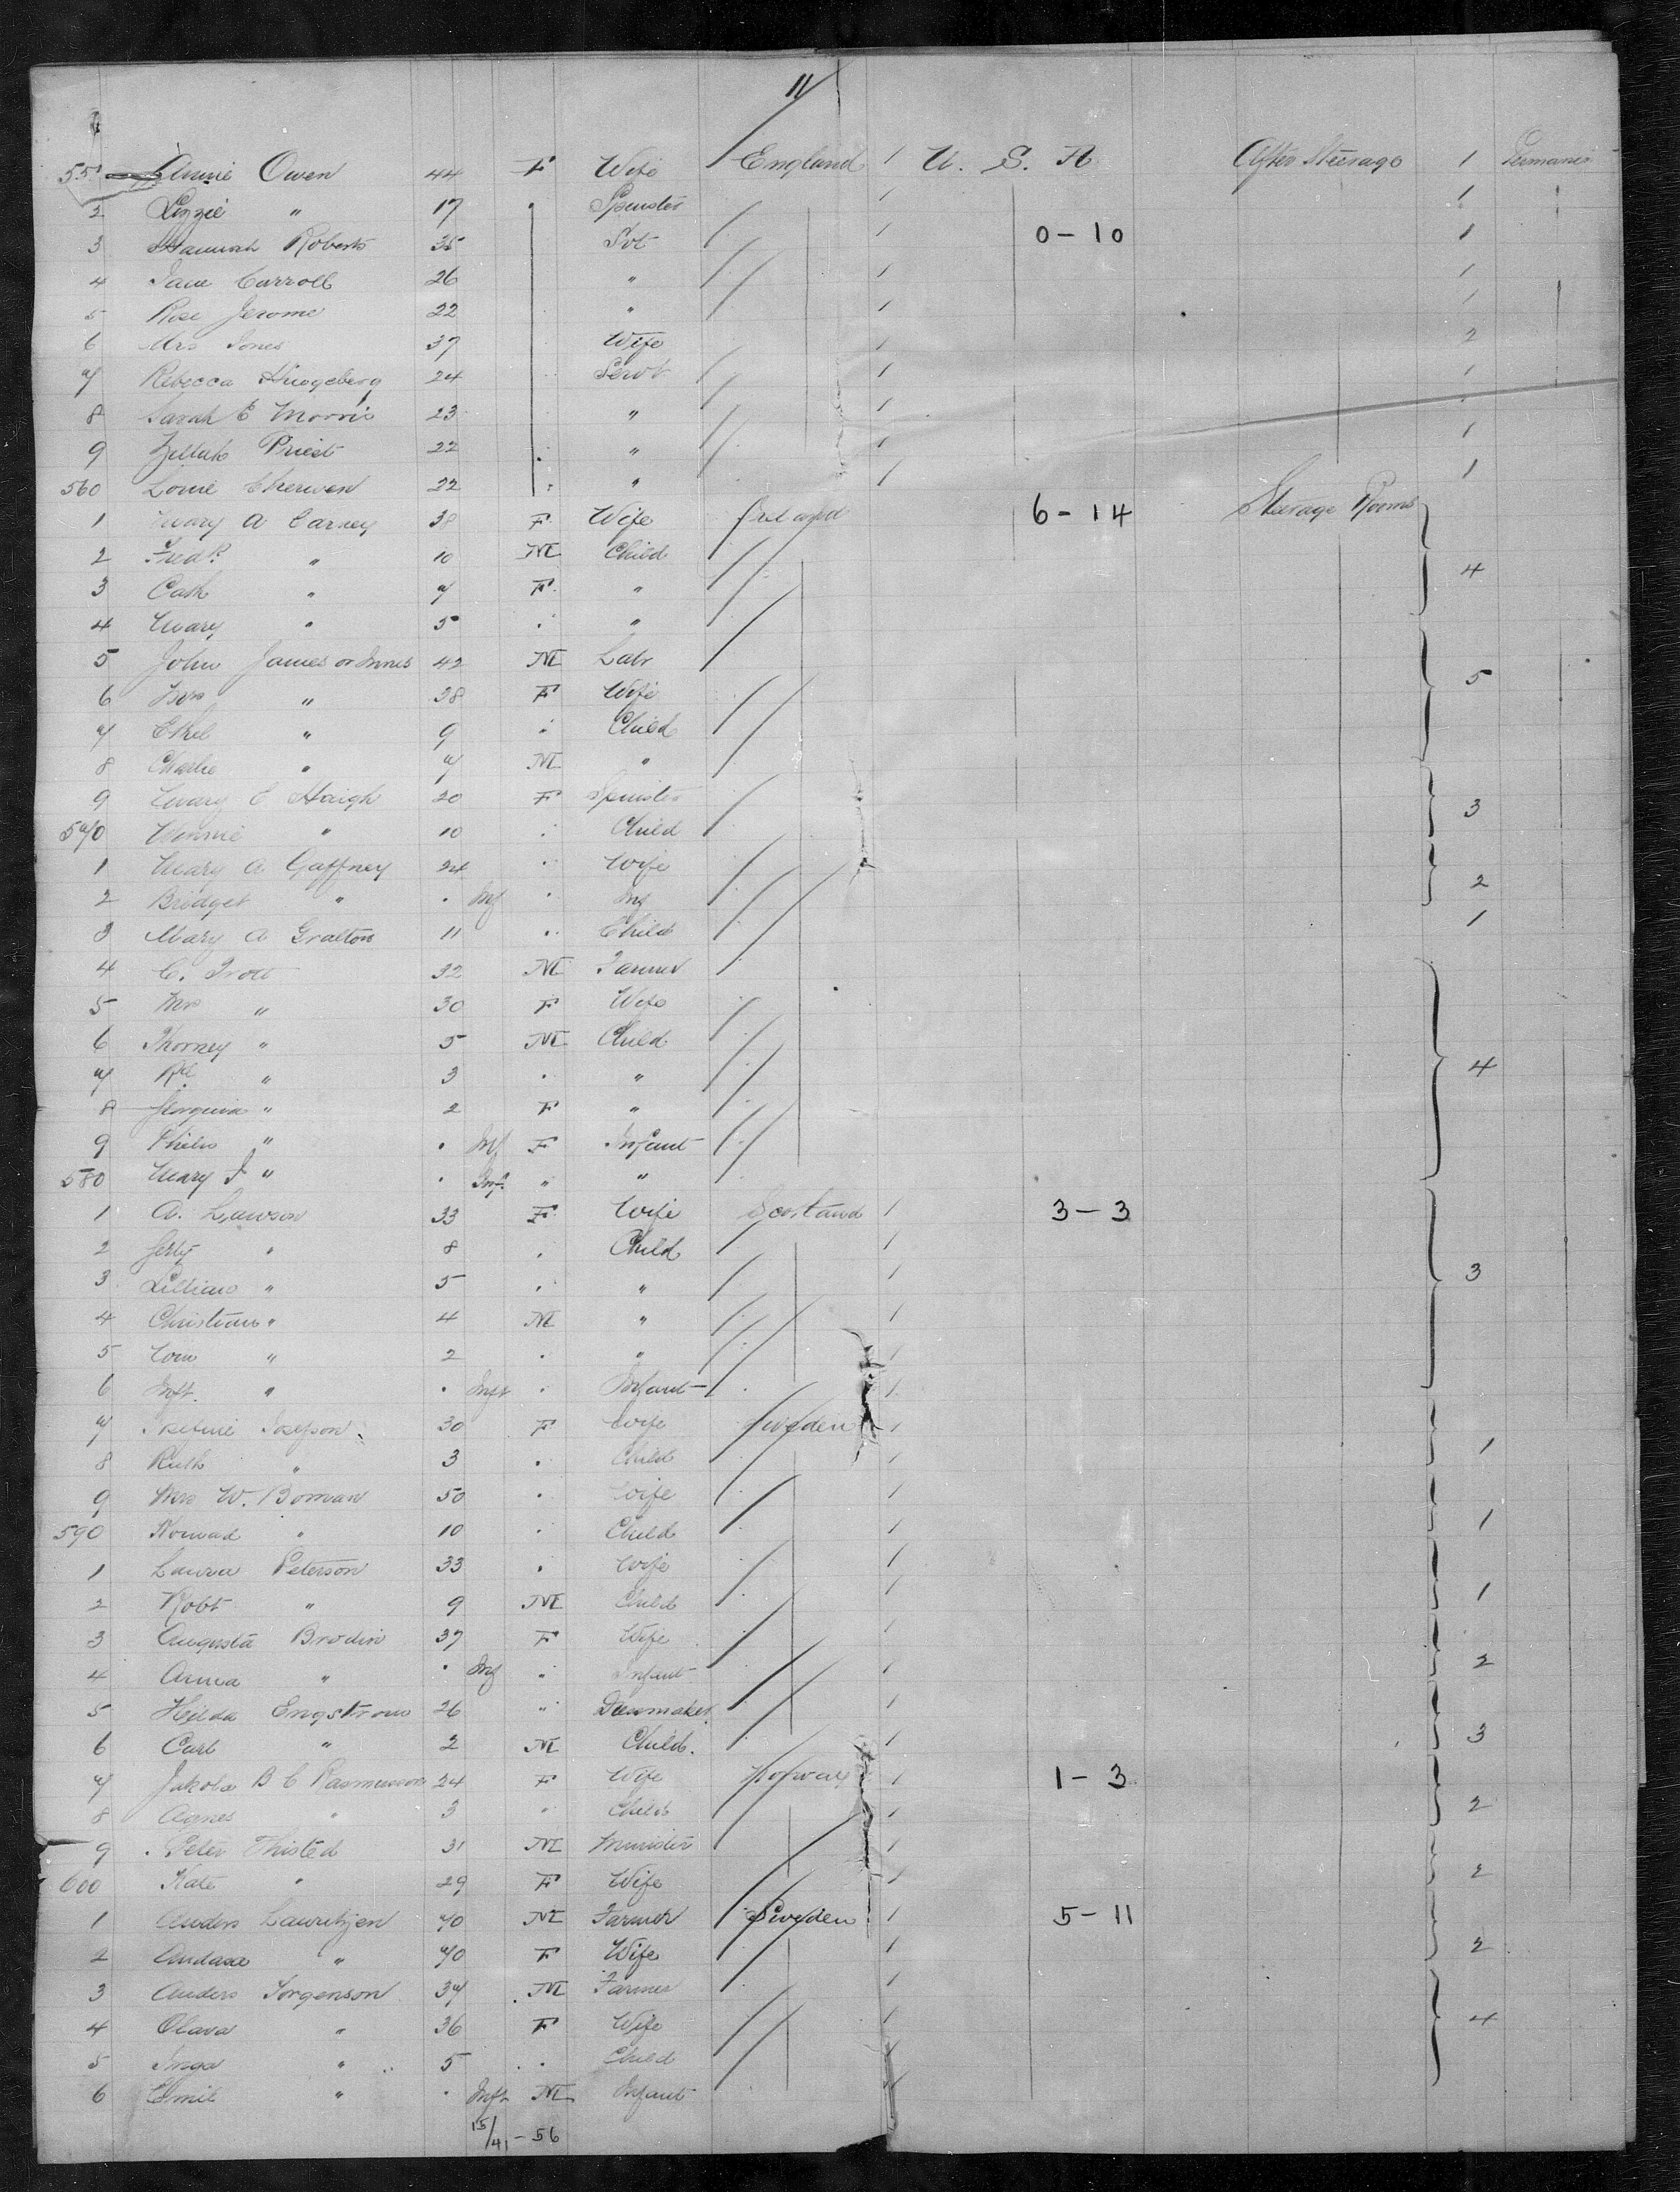 11
55 Annie Owen 44 F Wife England 1 U. S. A After Steerage 1
2 Lizzie " 17 Spinster 1 1
3 Hannah Roberts 35 Svt 1 0-10 1
4 Jane Carroll 26 " 1 1
5 Rose Jerome 22 " 1 1
6 Mrs Jones 37 Wife 1 2
7 Rebecca 24 Servt 1 1
8 Sarah E Morris 23 " 1
9 Priest 22 " 1 1
560 22 " 1 1
1 Mary A Carney 38 F Wife Ireland 6-14 Steerage Rooms
2 Fredk " 10 M Child 4
3 Cath " 7 F "
4 Mary " 5 " "
5 John James or Innes 42 M Labr
6 Mrs " 38 F Wife 5
7 Ethel " 9 " Child
8 Charlie " 7 M "
9 Mary E Haigh 20 F Spinster 3
570 Winnie " 10 " Child
1 Mary A Gaffney 24 " Wife 2
2 Bridget " Inf " Inf
3 Mary A Gralton 11 " Child 1
4 C. Trott 32 M Farmer
5 Mrs " 30 F Wife
6 " 5 M Child
7 " 3 " " 4
8 Georgina " 2 F "
9 " Inf F Infant
580 Mary J " Inft " "
1 A. Lawson 33 F Wife Scotland 1 3-3
2 " 8 " Child 1
3 Lillian " 5 " " 1 3
4 Christian " 4 M " 1
5 " 2 " " 1
6 Inft " Inft " Infant 1
7 Josefson 30 F Wife Sweden 1
8 Ruth " 3 " Child 1 1
9 Mrs W. Boman 50 " Wife 1
590 Konrad " 10 " Child 1 1
1 Laura Peterson 33 " Wife 1
2 Robt " 9 M Child 1 1
3 Augusta Brodin 37 F Wife 1
4 Anna " Inf " Infant 1 2
5 Hilda Engstrom 26 " 1
6 Carl " 2 M Child 1 3
7 Jakola B C Rasmusson 24 F Wife Norway 1 1-3
8 Agnes " 3 " Child 1 2
9 Peter Thisted 31 M Minister 1
600 Kate " 29 F Wife 1 2
1 Anders Lauritzen 70 M Farmer Sweden 1 5-11
2 " 70 F Wife 1 2
3 Anders Jorgenson 37 M Farmer 1
4 Olava " 36 F Wife 1 4
5 Inga " 5 " Child 1
6 Emil " Inft M Infant
15/41-56